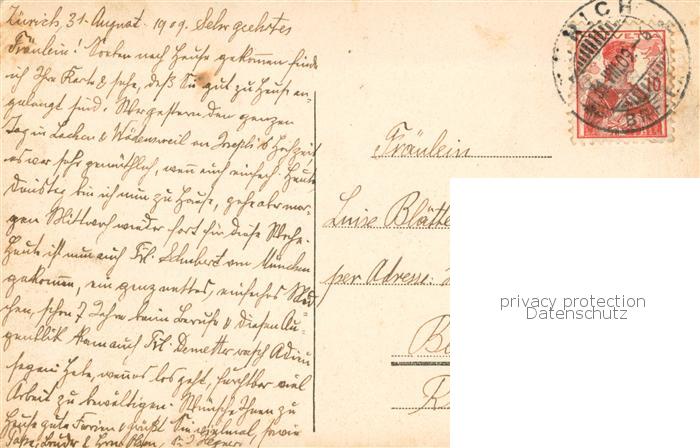 Zürich, 31. August. 1909. Sehr geehrtes
Fräulein! Soeben nach Hause gekommen finde
ich Ihre Karte & sehe, daß Sie gut zu Hause an-
gelangt sind. Wir gestern den ganzen
Tag in Lachen & Wädensweil an Hochzeit
es war sehr gemütlich, wenn auch einfach. Heute
Dienstag bin ich nun zu Hause, gehe aber mor-
gen Mittwoch wieder fort für diese Woche.
Heute ist nun auch Frl. Schubert von München
gekommen, ein ganz nettes, einfaches Mäd-
chen, schon 7 Jahre beim Berufe & diesen Au-
genblick kam auch Frl. rasch Adieu
sagen. Habe, wenn es los geht, furchtbar viel
Arbeit zu bewältigen. Wünsche Ihnen zu
Hause gute Ferien & grüße Sie vielmal, sowie
Bruder &
Fräulein
Luise Blätte
per Adresse:
B
ZÜRICH
HELVETIA
10
31.VIII.09.
privacy protection
Datenschutz